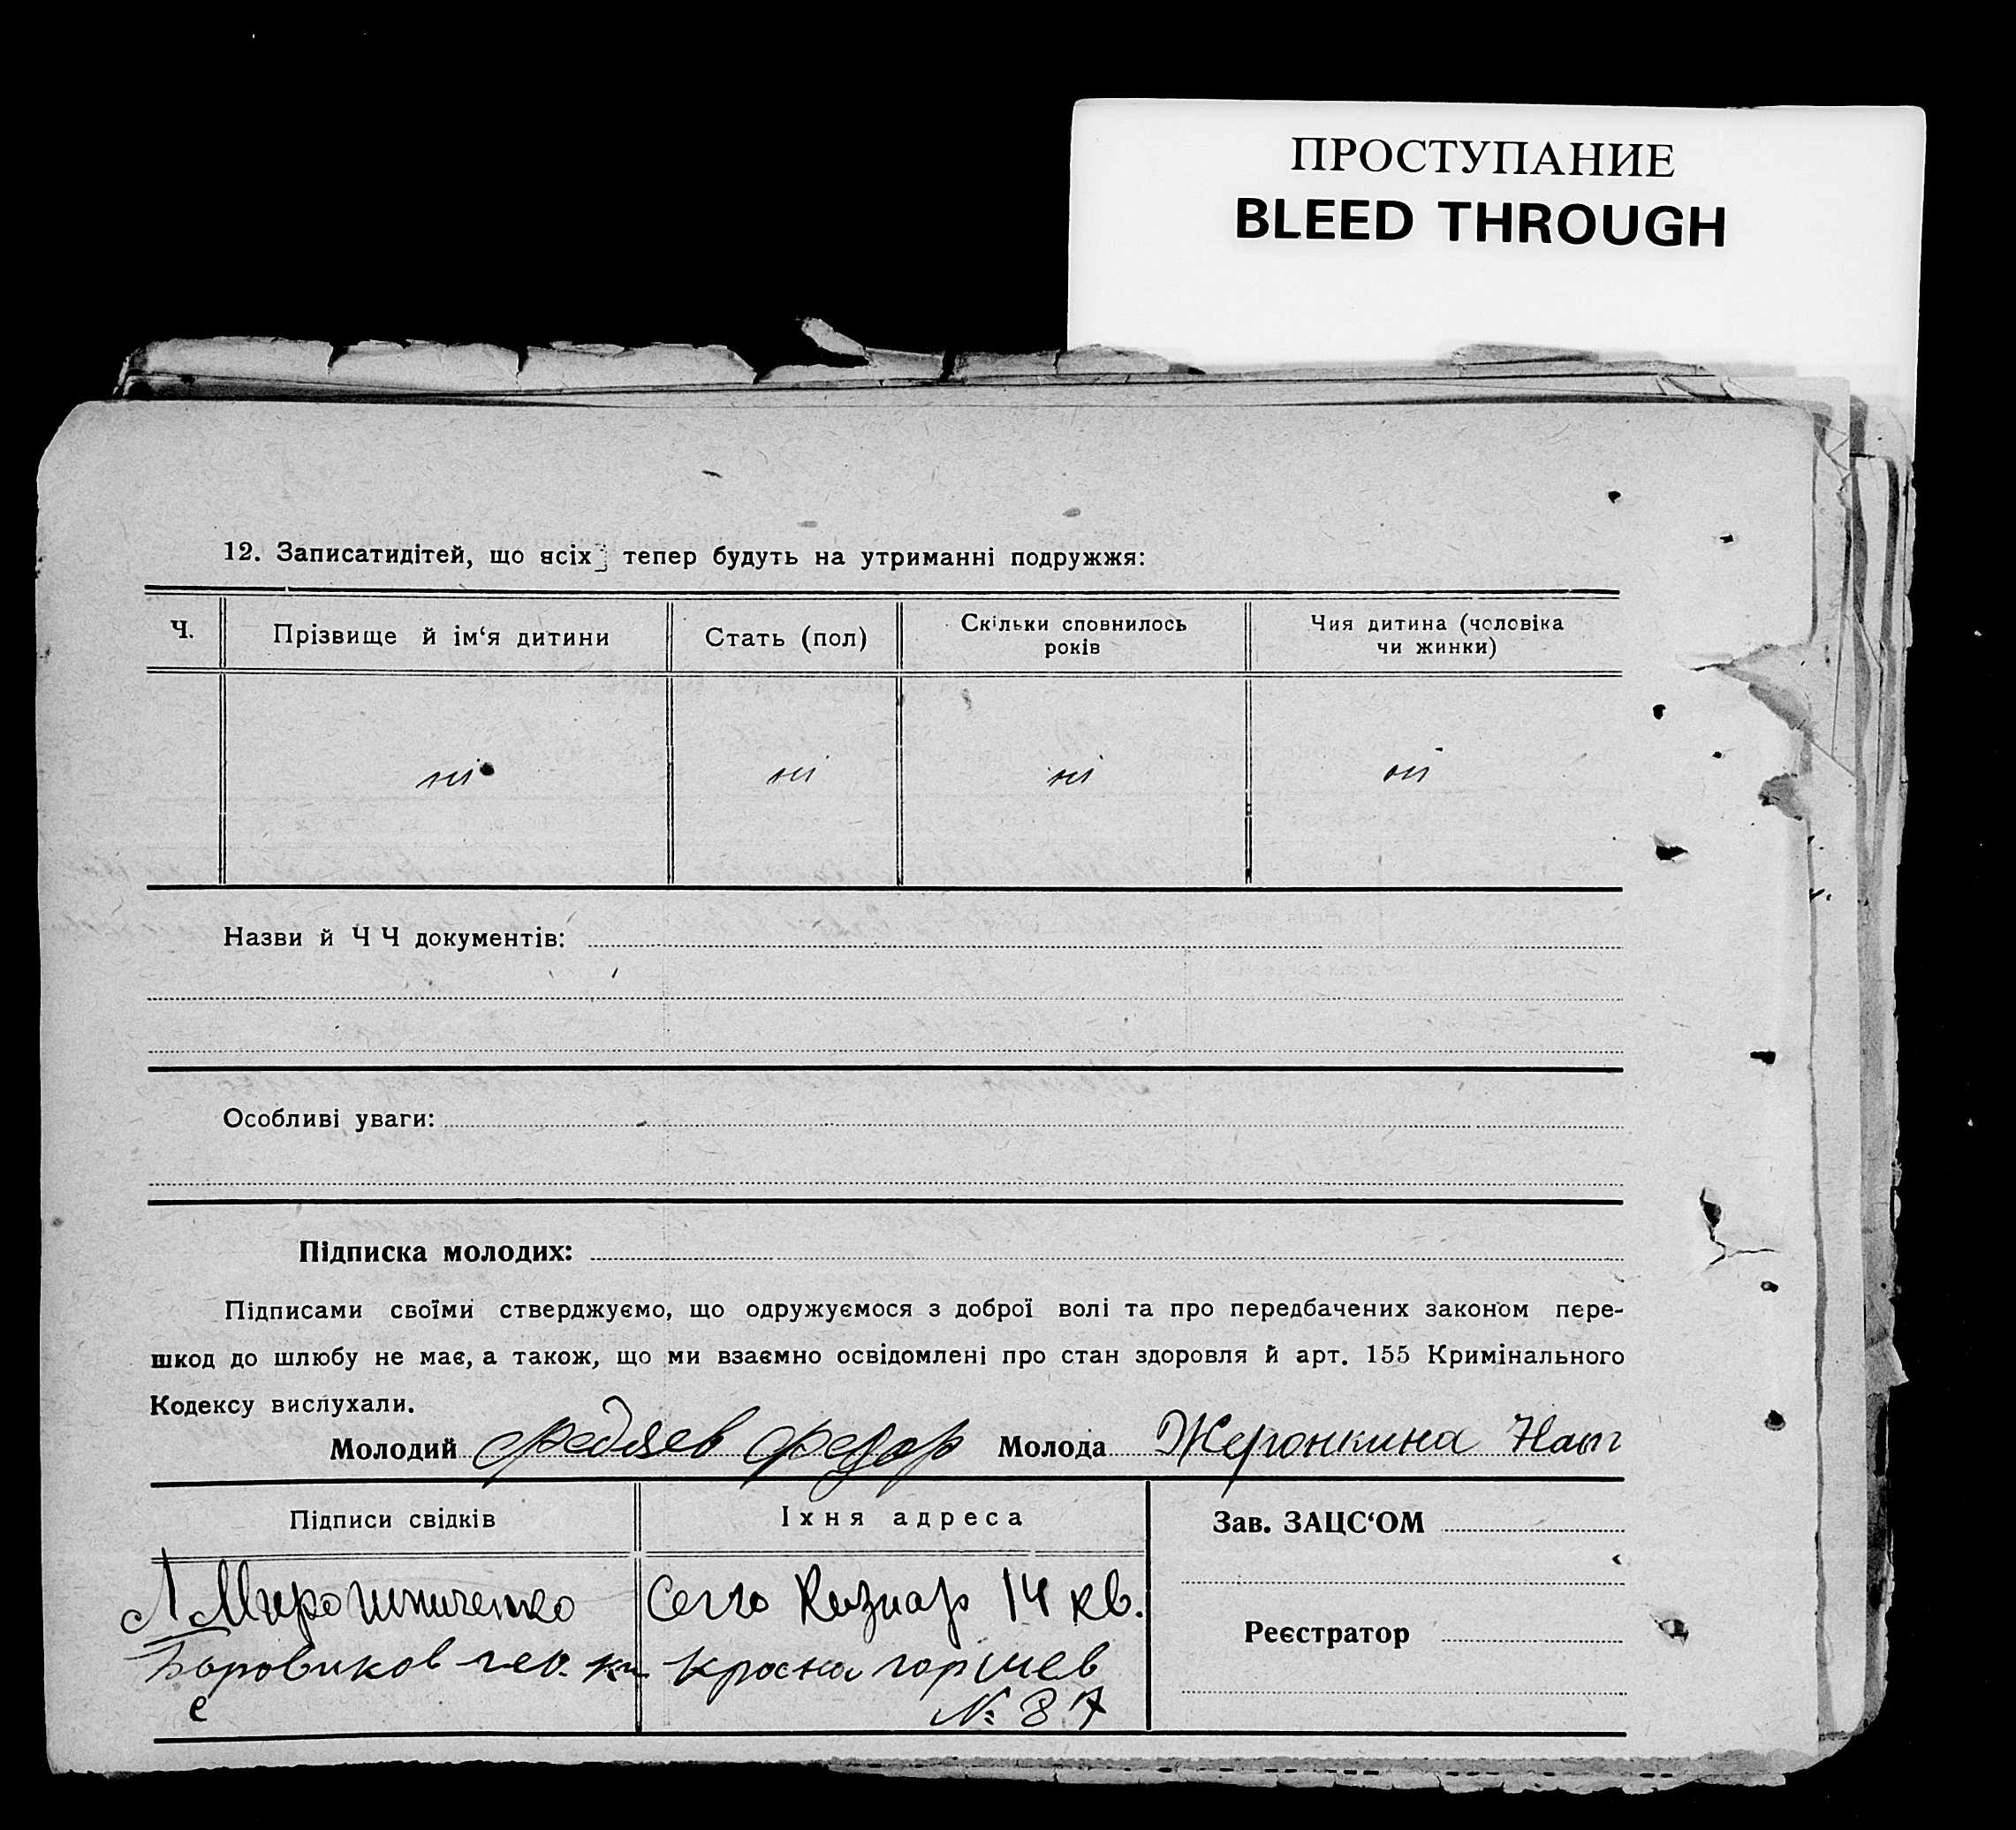 ПРОСТУПАНИЕ
BLEED THROUGH
12. Записатидітей, що всіх тепер будуть на утриманні подружжя:
Ч.
Прізвище й ім‘я дитини
Стать (пол)
Скільки сповнилось
років
Чия дитина (чоловіка
чи жинки)
ні ні ні ні
Назви й Ч Ч документів:
Особливі уваги:
Підписка молодих:
Підписами своїми стверджуємо, що одружуємося з доброї волі та про передбачених законом пере-
шкод до шлюбу не має, а також, що ми взаємно освідомлені про стан здоровля й арт. 155 Кримінального
Кодексу вислухали.
Молодий Федяев Федор Молода Жеронкина Нат
Підписи свідків
Їхня адреса
Зав. ЗАЦС‘ОМ
Л Мирошниченко
Село 14 кв.
Реєстратор
Боровиков
№ 87